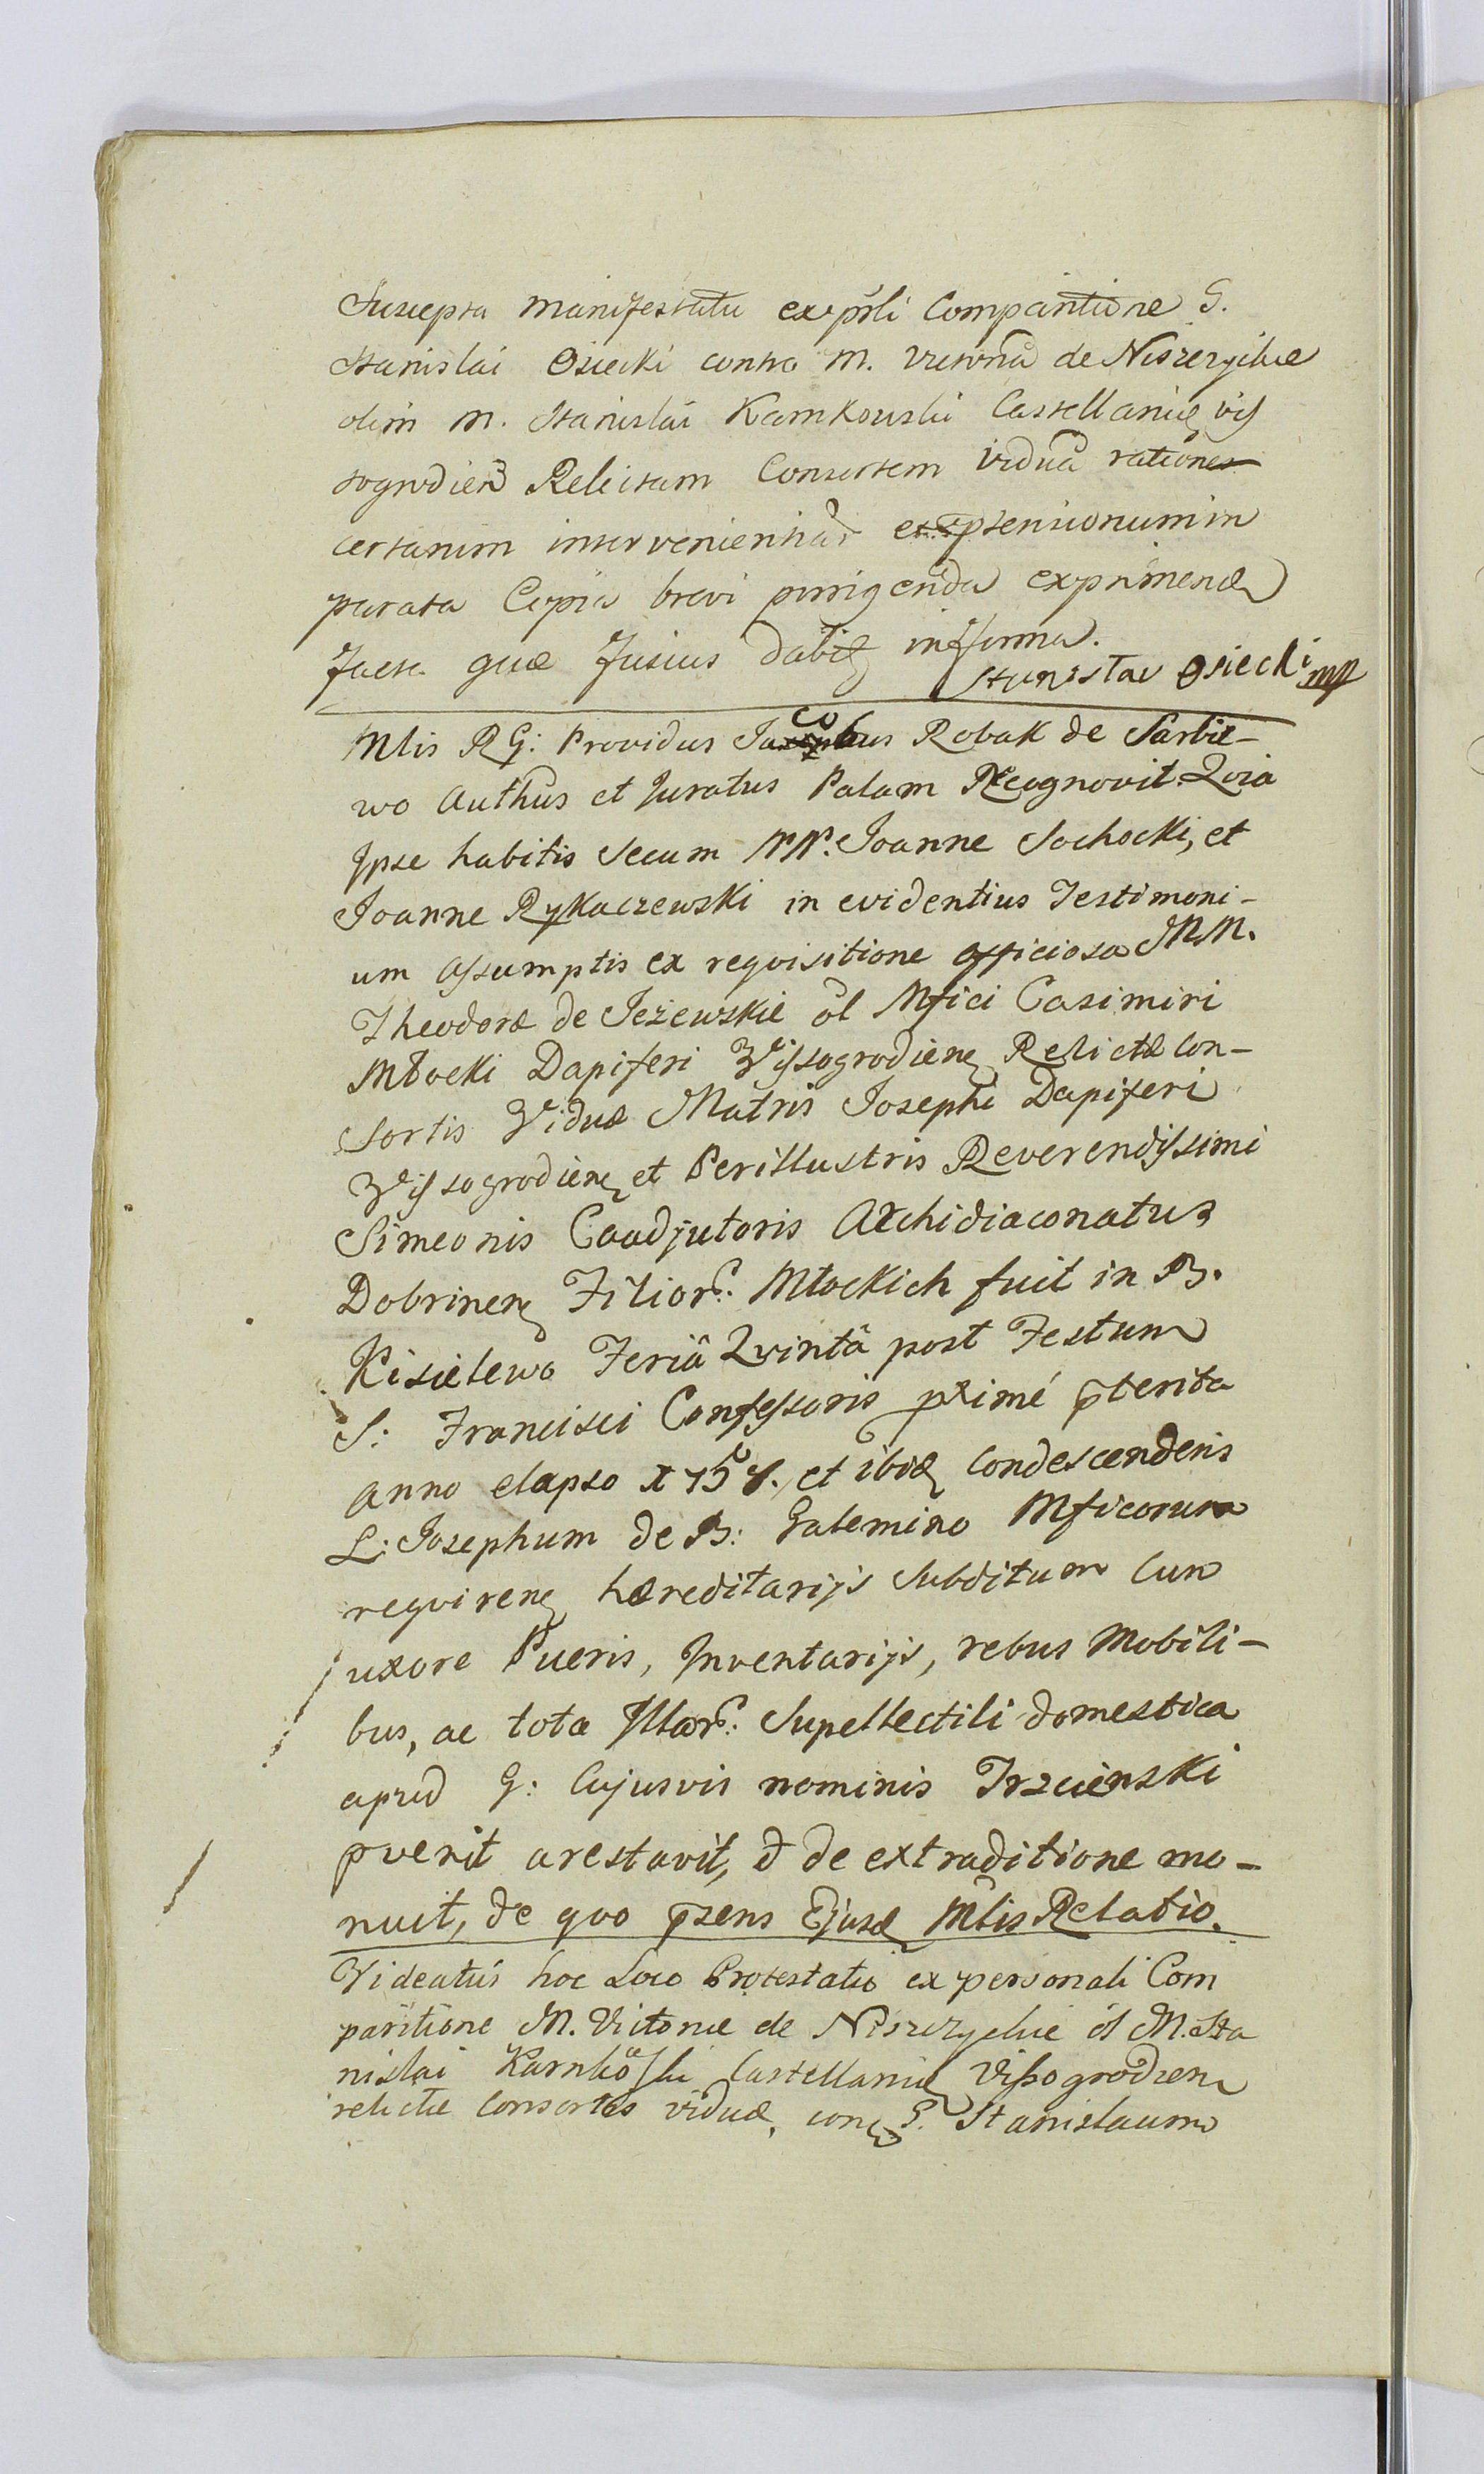 Suscepta manifestatio ex pnli Comparitione G.
Stanislai Osiecki contra M. Victoriā de Niszczyckie
olim M. Stanislai Karnkowski Castellanię vis
sogrodień Relictam Consortem Viduā ratione
certarum intervenientiar̃ et ptensionum in
parata Copia brevi porrigenda exprimend
facta quæ fusius dabit̃ in forma.
Stanisław Osiecki mp
Mlis RG: Providus Jacobus Robak de Sarbie-
wo Auth̃us et Juratus Palam Recognovit. Qvia
Ipse habitis Secum NN. Joanne Sochocki, et
Joanne Rykaczewski in evidentius Testimoni-
um assumptis ex requisitione officiosa MM.
Theodoræ de Jeżewskie ol Mfici Casimiri
Młocki Dapiferi Vissogrodien Relictæ Con-
sortis Viduæ Matris Josephi Dapiferi
Vissogrodien et Perillustris Reverendissimi
Simeonis Coadjutoris Archidiaconatus
Dobrinen Filior̃: Młockich fuit in B.
Kisielewo Feriâ Qvintâ post Festum
S: Francisci Confessoris ximé p̃terita
anno elapso et ibid condescendens
L: Josephum de B: Galemino Mficorum
requiren hæreditarijs Subditum Cum
uxore Pueris, Inventarijs, rebus Mobili-
bus, ac tota Illor̃: Supellectili domestica
apud G: Cujusvis nominis Trzcienski
p̃uenit arestavit, et de extraditione mo-
nuit, de quo p̃zens Ejusd Mlis Relatio.
Videatur hoc Loco Protestatio ex personali Com
paritione M. Victoriæ de Niszczyckie ol M. Sta
nislai Karnkoski Castellanię Vissogrodien
relictæ Consortis viduæ, con G. Stanislaum